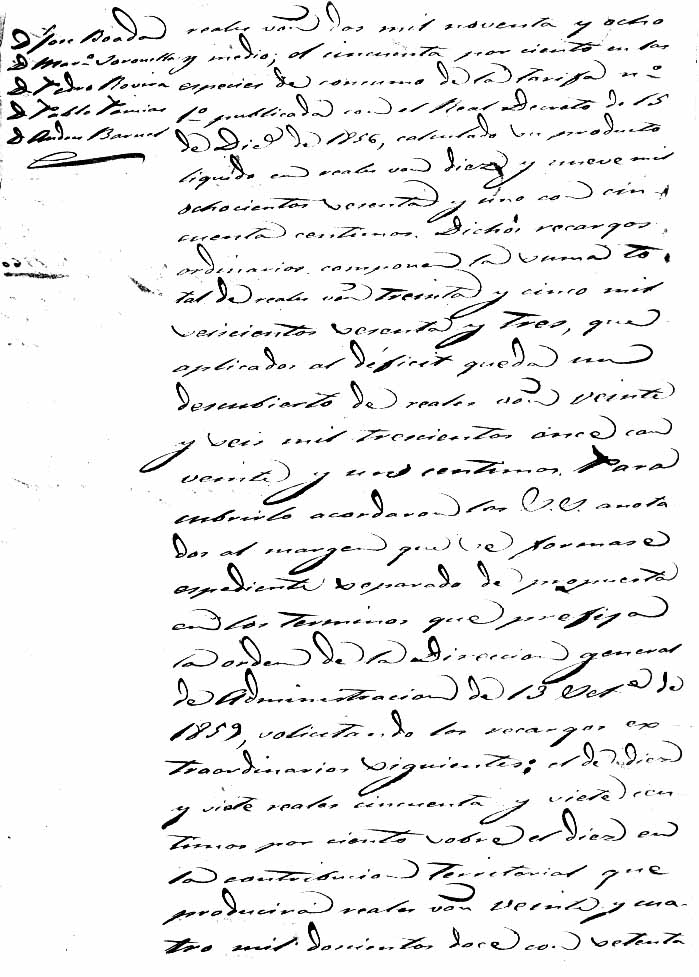 D. Jose Boada
D. Mar.º
D. Pedro Rovira
D. Pablo
D. Andres
reales von dos mil noventa y ocho
y medio; el cincuenta por ciento en las
especies de consumo de la tarifa n.º
1.º publicada con el Real Decreto de 15
de Dic.e de 1856, calculado su producto
liquido en reales von diez y nueve mil
ochocientos sesenta y uno con cin-
cuenta centimos. Dichos recargos
ordinarios componen la suma to-
tal de reales von treinta y cinco mil
seiscientos sesenta y tres, que
aplicados al déficit queda un
descubierto de reales von veinte
y seis mil trescientos once con
veinte y un centimos. Para
cubrirlo acordaron los S.S. anota
dos al margen que se formase
espediente separado de propuesta
en los terminos que prefija
la orden de la Direccion general
de Administracion de 13 Set.e de
1859, solicitando los recargos ex-
traordinarios siguientes: el de diez
y siete reales cincuenta y siete cen-
timos por ciento sobre el diez en
la contribucion territorial que
producirá reales von veinte y cua-
tro mil doscientos doce con setenta